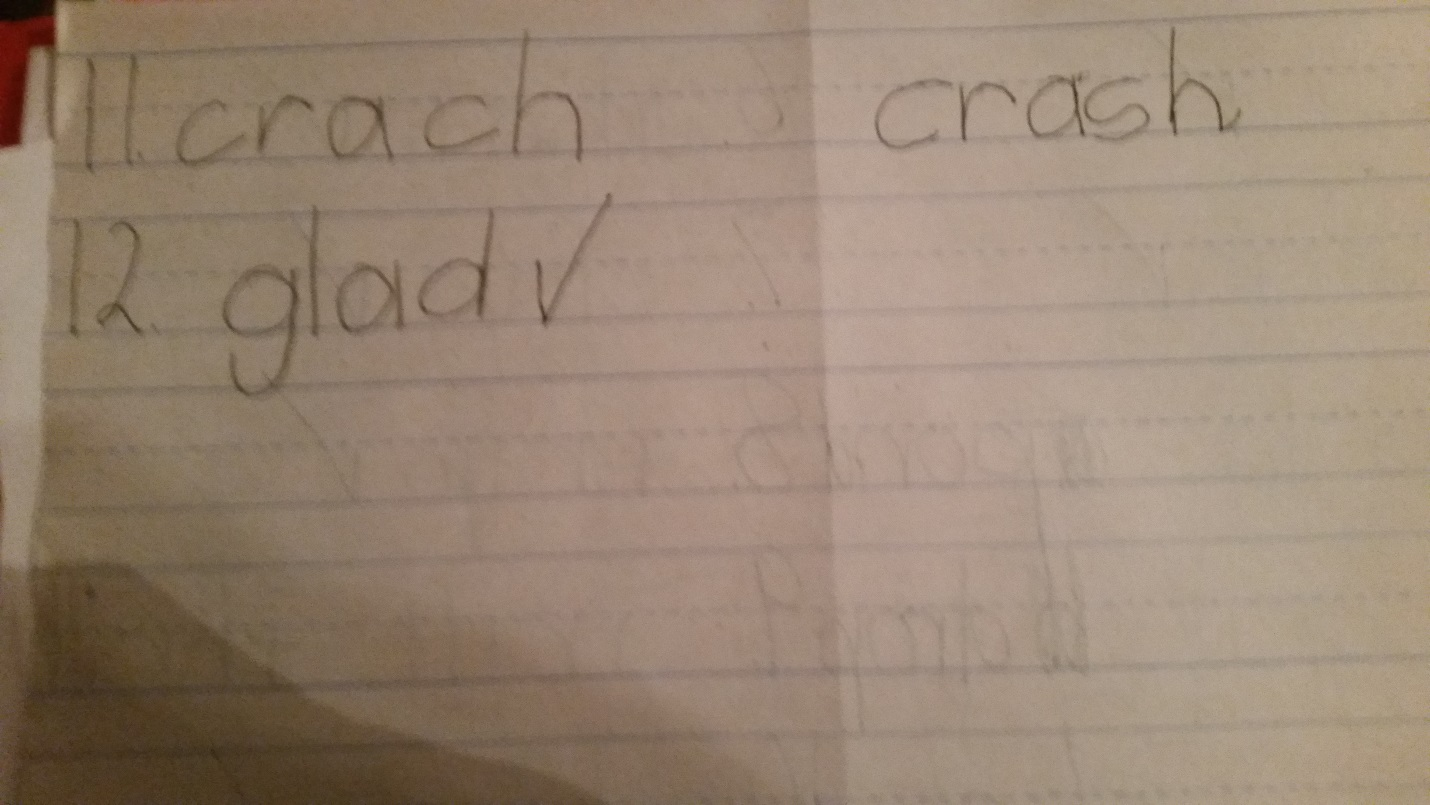 11. crach crash
12. glad ✓